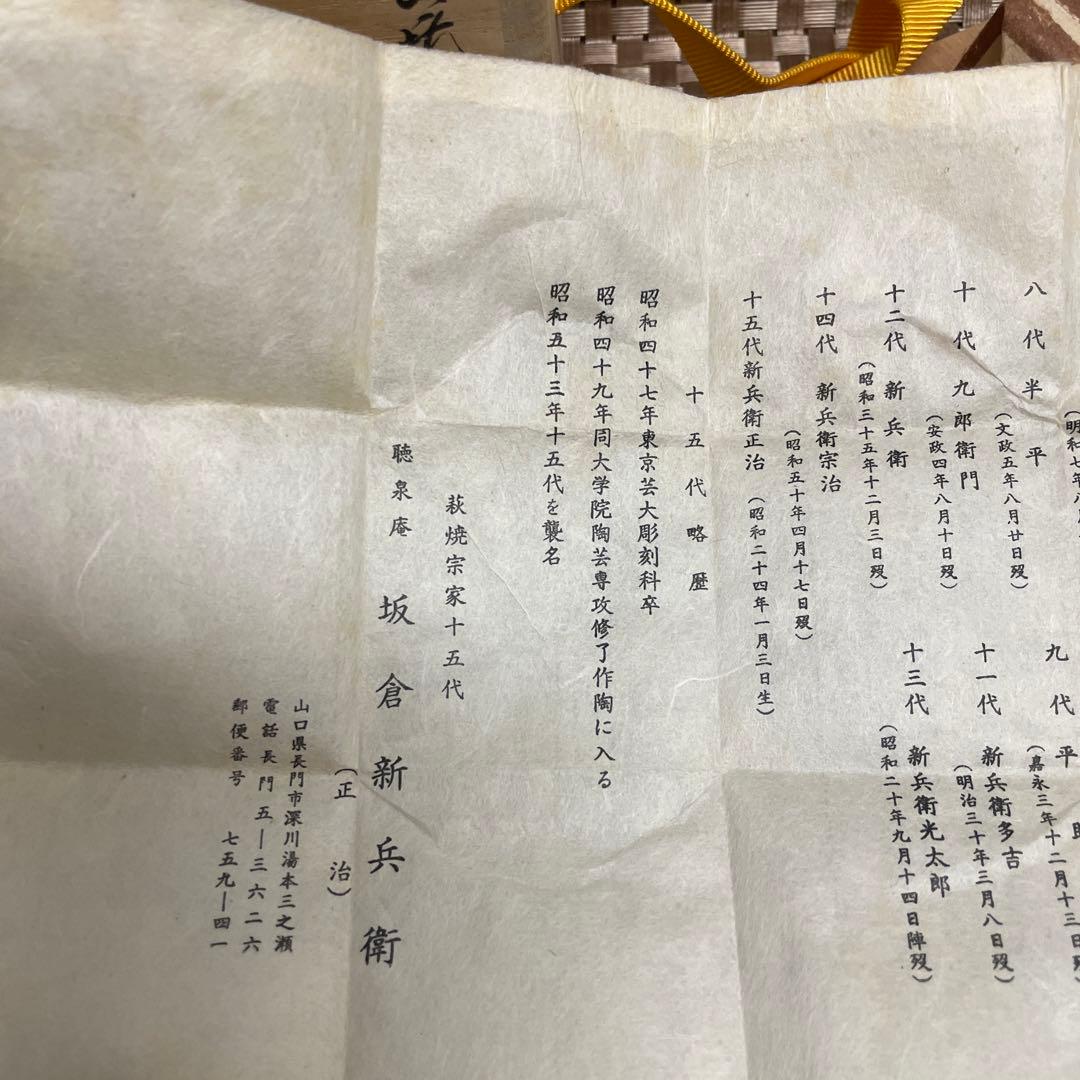 （明和七年八
八代 半平
（文政五年八月廿日歿）
九代 平助
（嘉永三年十二月十三日歿
十代 九郎衛門
（安政四年八月十日歿）
十一代 新兵衛多吉
（明治三十年三月八日歿）
十二代 新兵衛
（昭和三十五年十二月三日歿）
十三代 新兵衛光太郎
（昭和二十年九月十四日陣歿）
十四代 新兵衛宗治
（昭和五十年四月十七日歿）
十五代新兵衛正治（昭和二十四年一月三日生）
十五代略歴
昭和四十七年東京芸大彫刻科卒
昭和四十九年同大学院陶芸専攻修了作陶に入る
昭和五十三年十五代を襲名
萩焼宗家十五代
聴泉庵 坂倉新兵衛
（正治）
山口県長門市深川湯本三之瀬
電話長門五―三六二六
郵便番号 七五九―四一